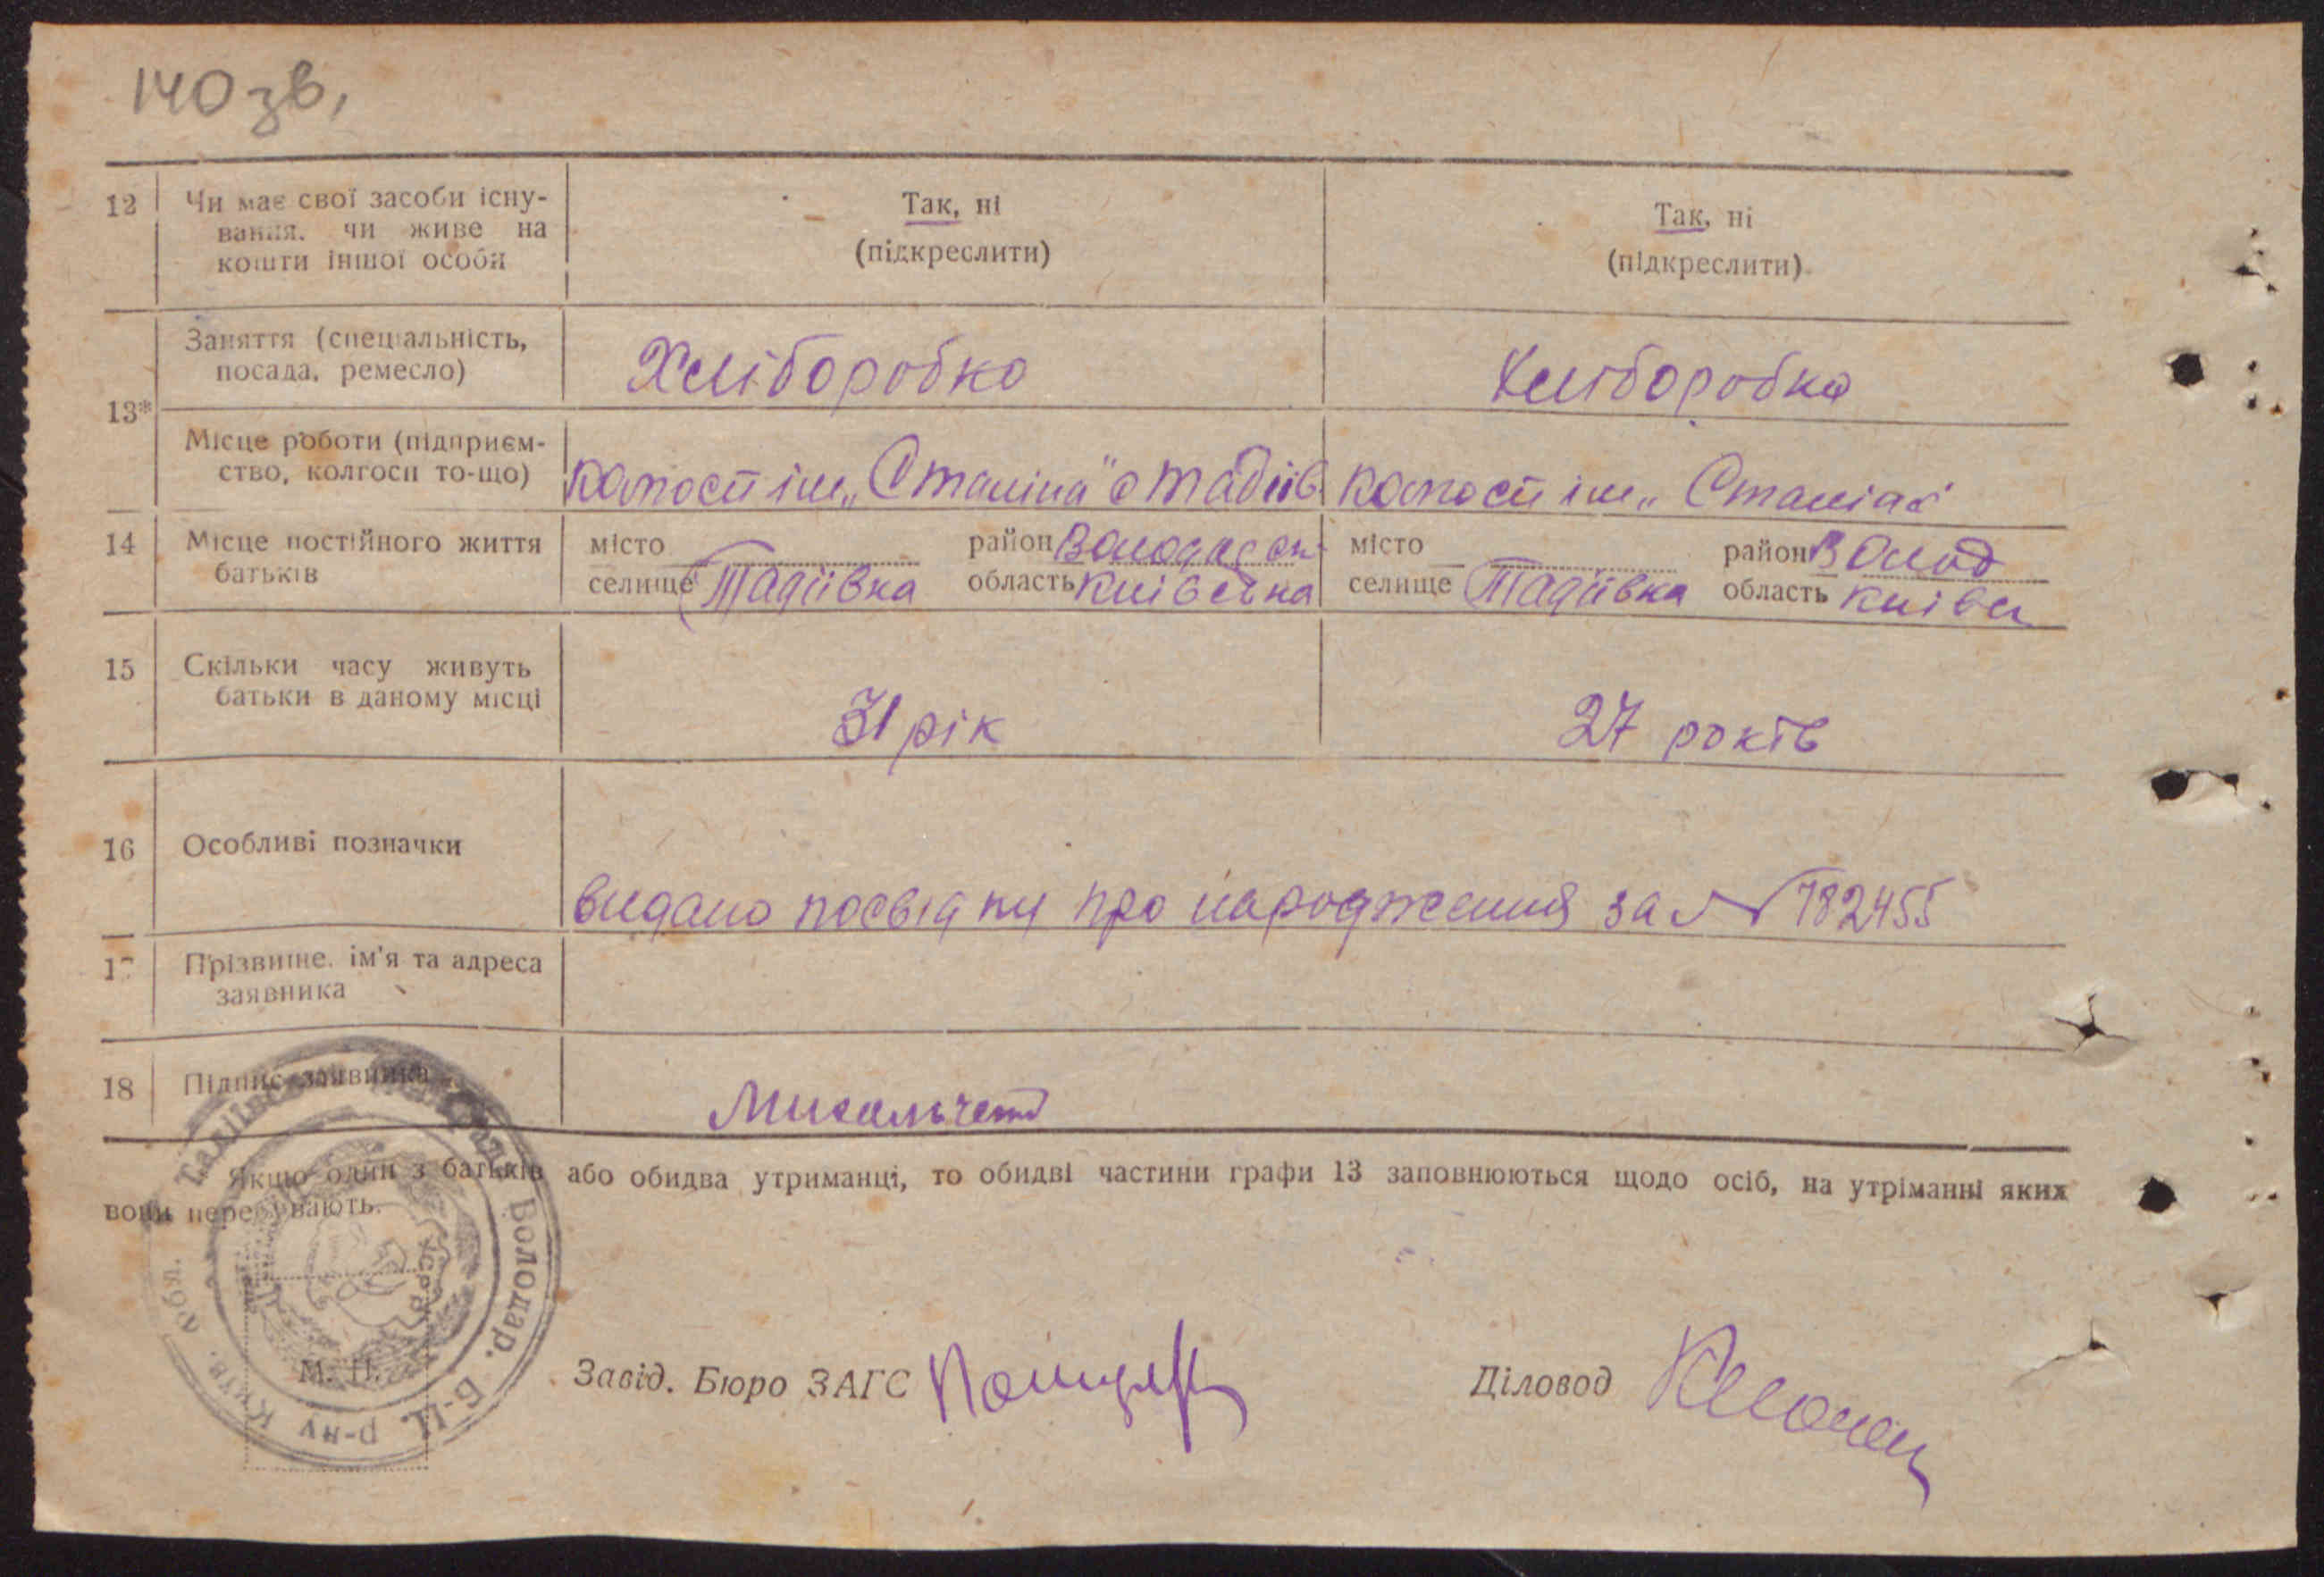 140 зв,
12 Чи має свої засоби існу-
вання. чи живе на
кошти іншої особи
Так, ні
(підкреслити)
Так, ні
(підкреслити)
13*
Заняття (спеціальність,
посада, ремесло)
Хліборобка
Хліборобка
Місце роботи (підприєм-
ство, колгосп то-що)
колгосп ім „Сталіна" с тадіїв
колгосп ім „Сталіна"
14 Місце постійного життя
батьків
місто
район Володарськ
селище Тадіївка
область Київська
місто
район Волод
селище Тадіївка
область Київсь
15 Скільки часу живуть
батьки в даному місці
31 рік
27 років
16 Особливі позначки
видано посвідку про народження за № 782455
17 Прізвище. ім'я та адреса
заявника
18 Підпис заявника
Якщо один з батьків або обидва утриманці, то обидві частини графи 13 заповнюються щодо осіб, на утріманні яких
вони перебувають.
Володар. Б-Ц. р-ну Київ. обл.
УСРР
М. П.
Завід. Бюро ЗАГС
Діловод